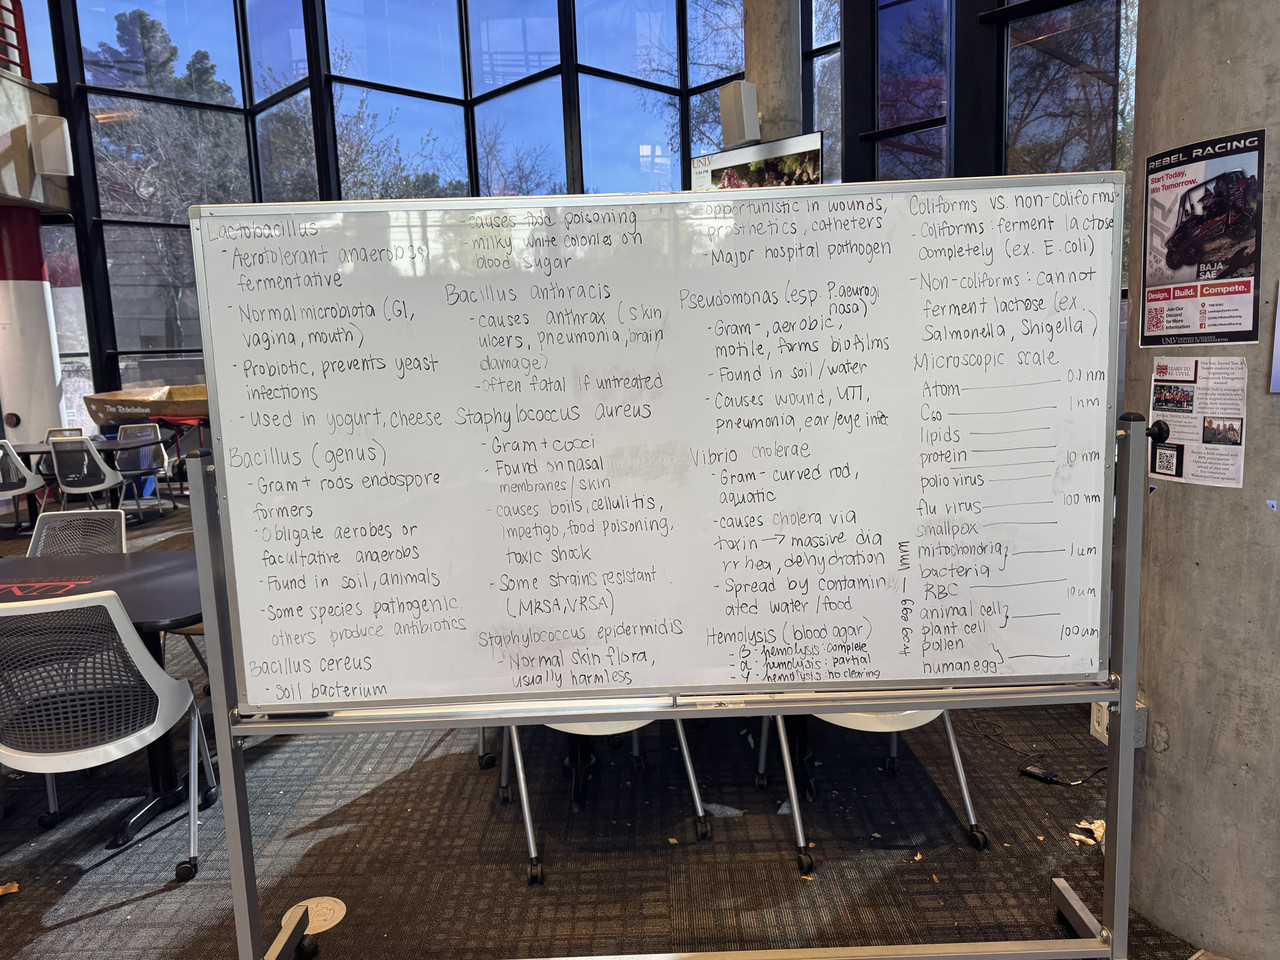 Lactobacillus
- Aerotolerant anaerobes
fermentative
- Normal microbiota (GI,
vagina, mouth)
- Probiotic, prevents yeast
infections
- Used in yogurt, cheese
Bacillus (genus)
- Gram+ rods endospore
formers
- Obligate aerobes or
facultative anaerobs
- Found in soil, animals
- Some species pathogenic
others produce antibiotics
Bacillus cereus
- Soil bacterium
- causes food poisoning
- milky white colonies on
blood sugar
Bacillus anthracis
- causes anthrax (skin
ulcers, pneumonia, brain
damage)
- Often fatal if untreated
Staphylococcus aureus
- Gram+ cocci
- Found on nasal
membranes/skin
- causes boils, cellulitis,
Impetigo, food poisoning,
toxic shock
- Some strains resistant
(MRSA, VRSA)
Staphylococcus epidermidis
- Normal skin flora,
usually harmless
- opportunistic in wounds,
prosthetics, catheters
- Major hospital pathogen
Pseudomonas (esp. P. aerugi
nosa)
- Gram-, aerobic,
motile, forms biofilms
- Found in soil/water
- Causes wound, UTI,
pneumonia, ear/eye
Vibrio cholerae
- Gram- curved rod,
aquatic
- causes cholera via
toxin → massive dia
rrhea, dehydration
- Spread by contamin
ated water/food
Hemolysis (blood agar)
- β- hemolysis: complete
- α- hemolysis: partial
- γ- hemolysis: no clearing
Coliforms vs. non-coliforms
- Coliforms: ferment lactose
completely (ex. E. coli)
- Non-coliforms: cannot
ferment lactose (ex.
Salmonella, Shigella)
Microscopic scale
Atom 0.1 nm
C60 1 nm
lipids
protein 10 nm
polio virus
flu virus 100 nm
smallpox
mitochondria } 1 um
bacteria
RBC 10 um
animal cell }
plant cell 100 um
pollen
human egg } 1
REBEL RACING
Start Today,
Win Tomorrow.
BAJA
SAE
Design. Build. Compete.
Join Our
Discord
for More
Information
UNLV
LEARN TO
BE CIVIL
UNLV
The Rebellion